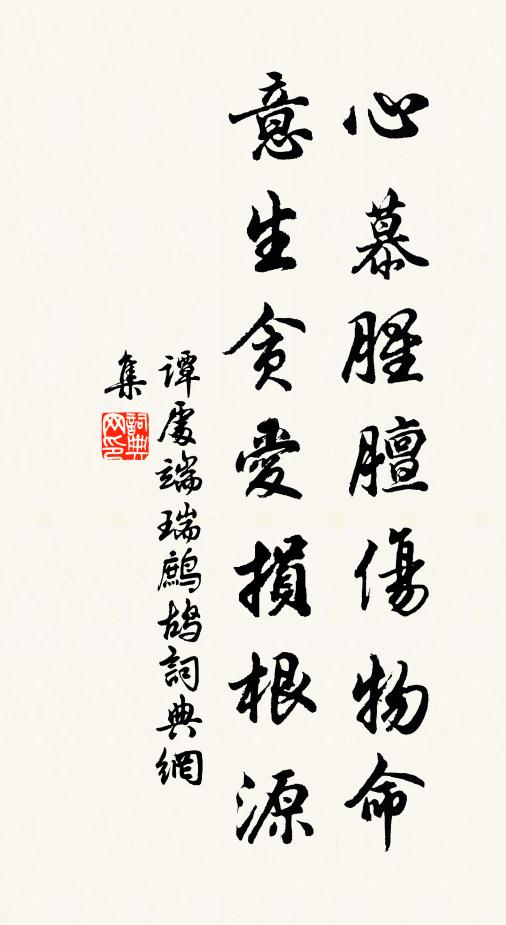 心慕腥膻傷物命
意生貪愛損根源
譚處端瑞鷓鴣詞典網
集
詞典
网印